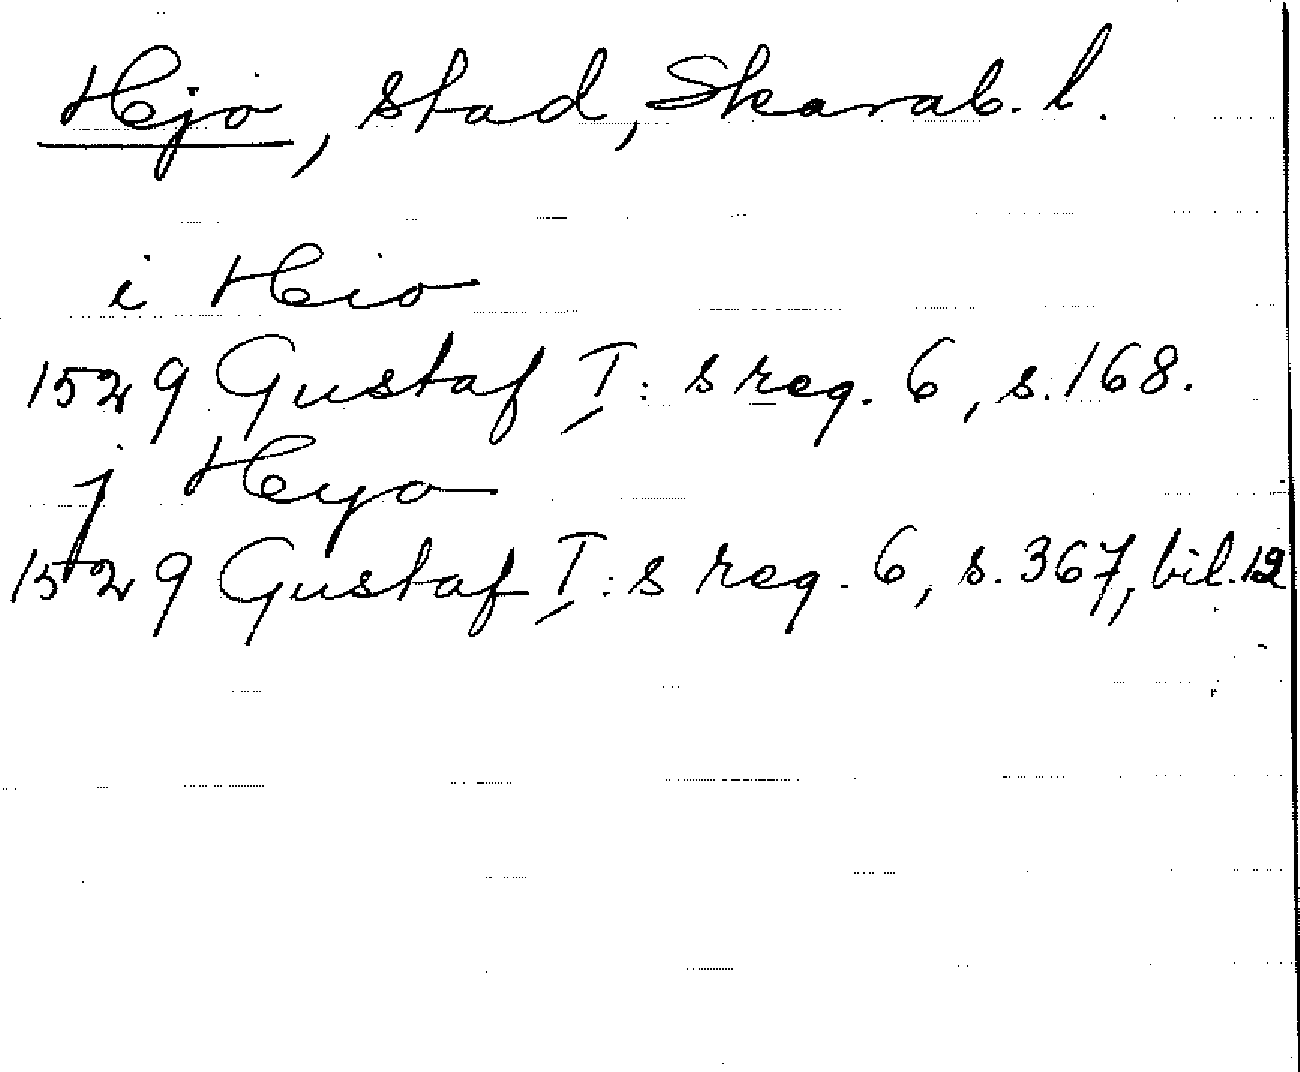 Hejo, stad, Skarab. l.
i Heio
1529 Gustaf I:s reg. 6, s. 168.
j Heyo
1529 Gustaf I:s reg. 6, s. 367, bil. 12